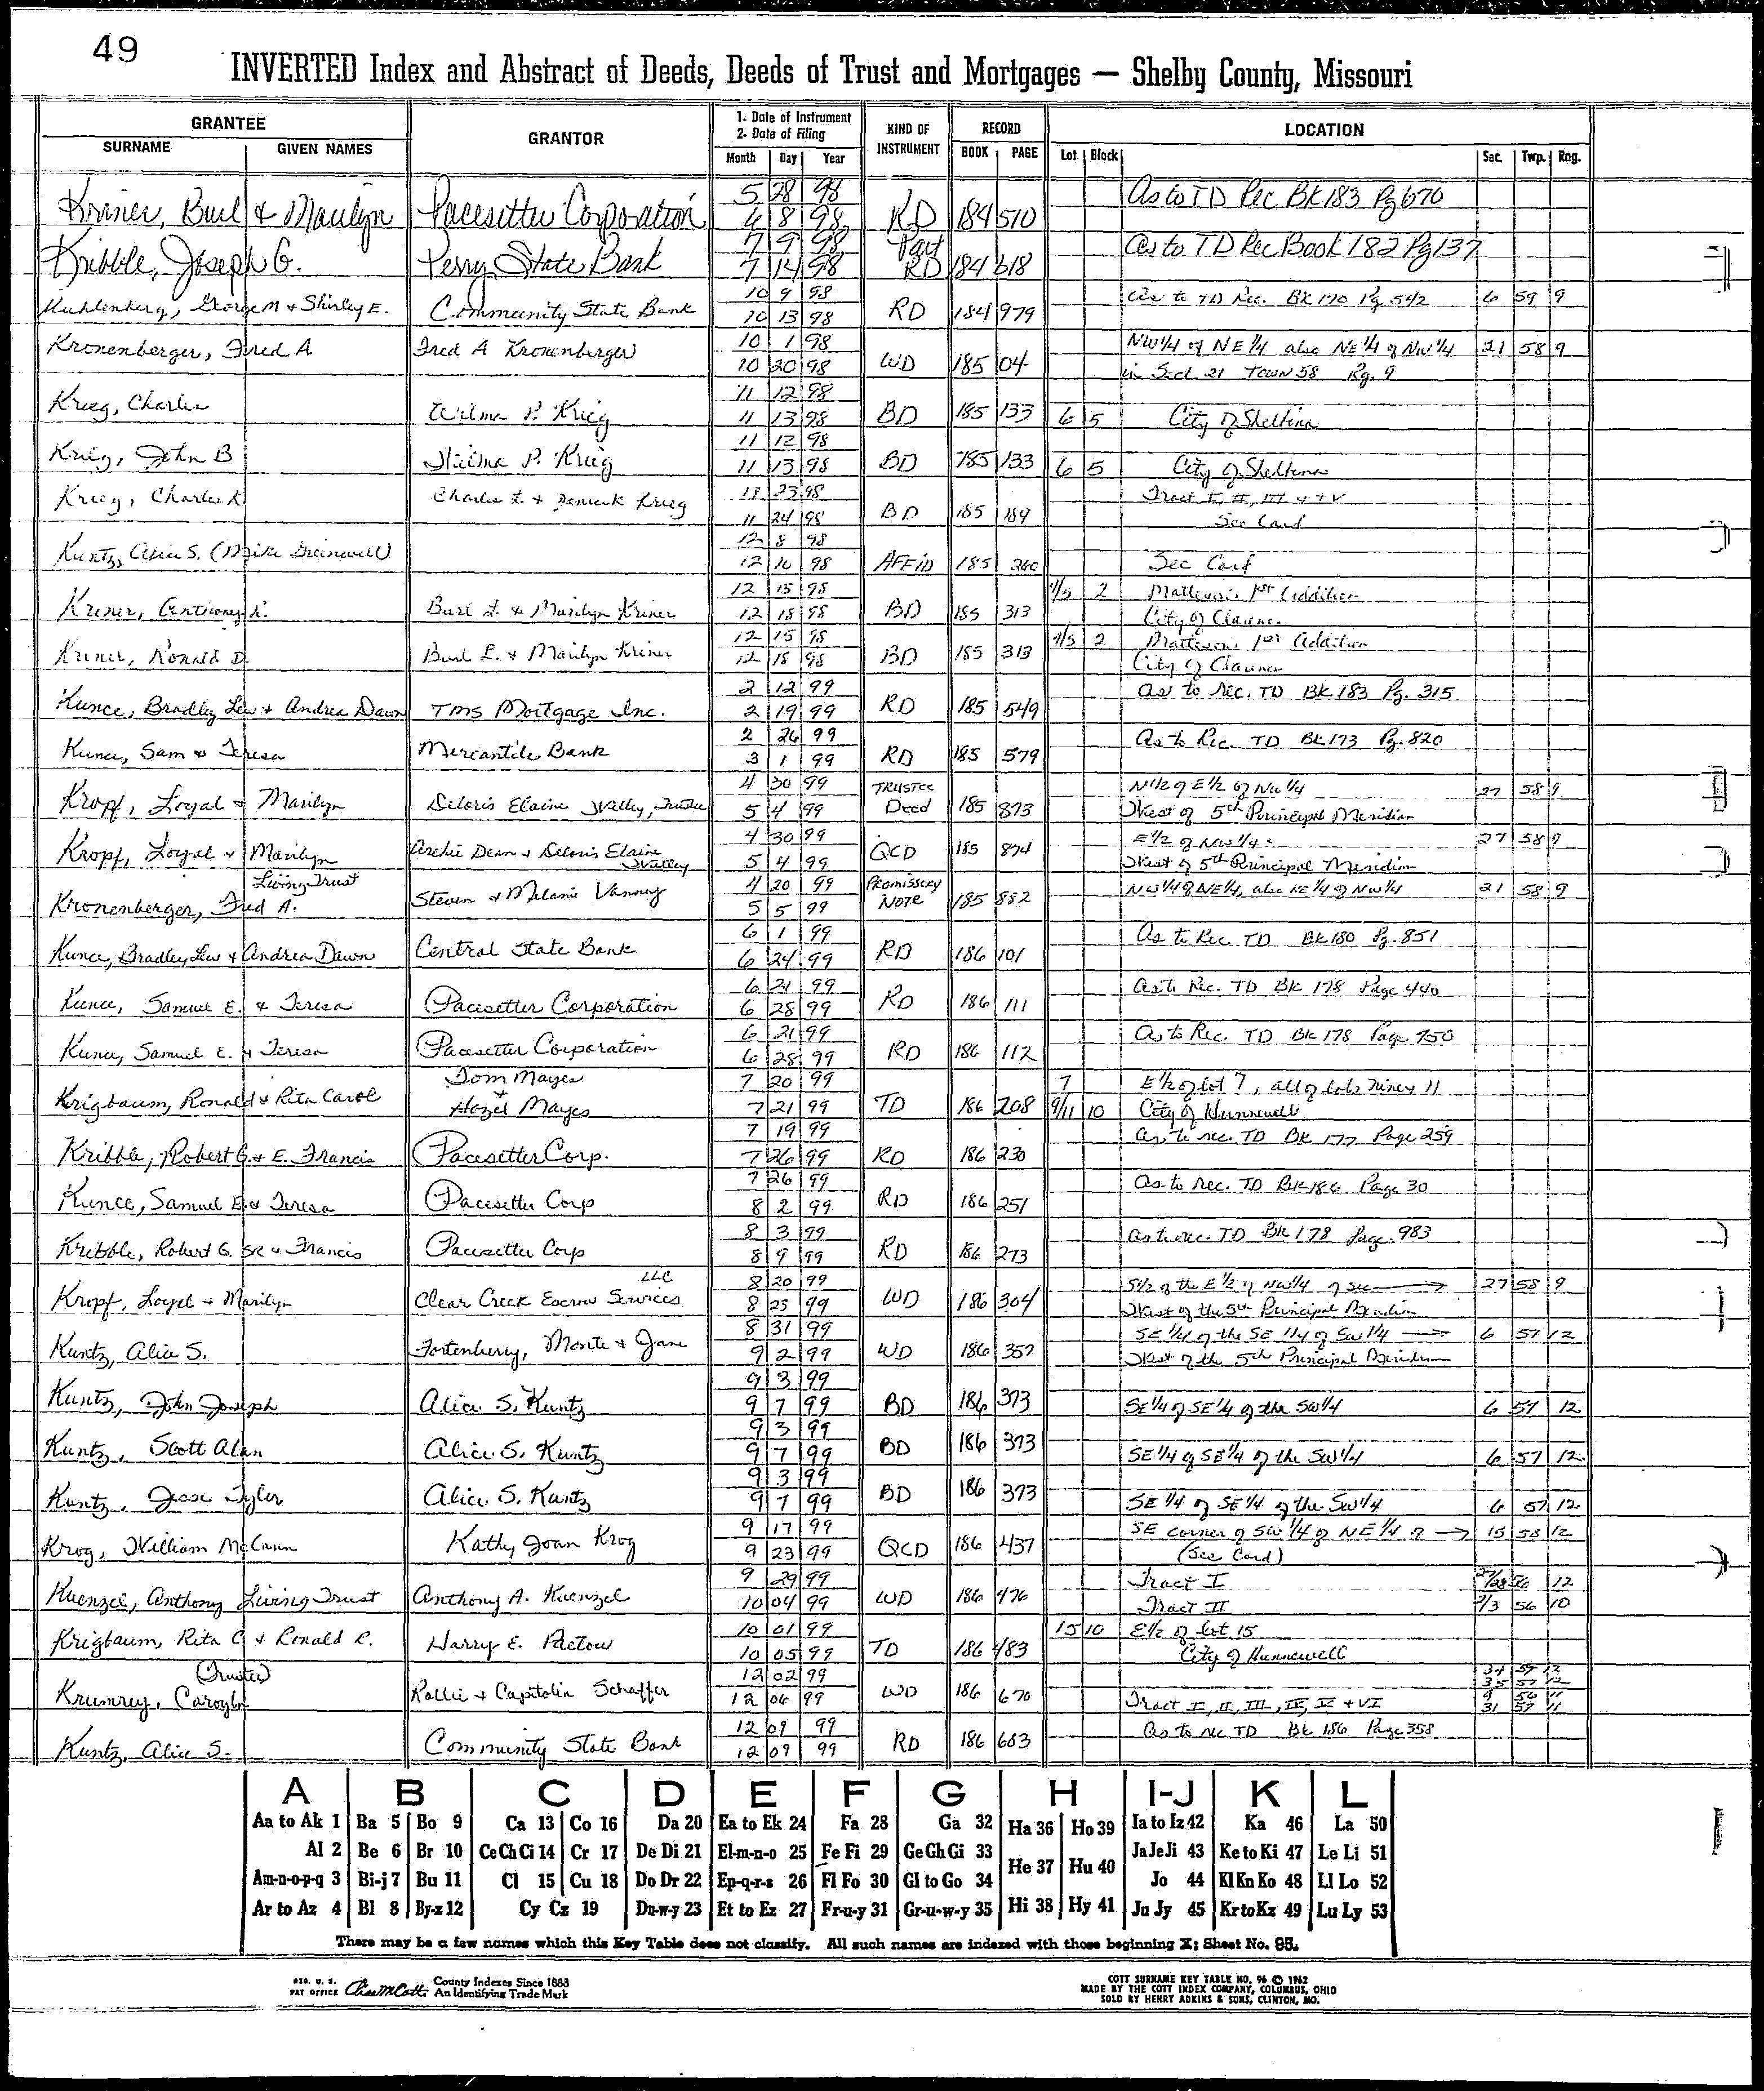 49
INVERTED Index and Abstract of Deeds, Deeds of Trust and Mortgages — Shelby County, Missouri
GRANTEE GRANTOR 1. Date of Instrument 2. Date of Filing KIND OF INSTRUMENT RECORD LOCATION
SURNAME GIVEN NAMES Month Day Year BOOK PAGE Lot Block Sec. Twp. Rng.
5 28 98 As to TD Rec Bk 183 Pg 670
Kriner, Burl & Marilyn Pacesetter Corporation 6 8 98 RD 184 510
7 9 98 Part As to TD Rec Book 182 Pg 137
Kribble, Joseph G. Perry State Bank 7 14 98 RD 184 618
10 9 98 As to TD Rec. BK 170 Pg. 542 6 59 9
Kuhlenberg, George M & Shirley E. Community State Bank 10 13 98 RD 184 979
10 1 98 NW1/4 of NE 1/4 also NE 1/4 of NW 1/4 21 58 9
Kronenberger, Fred A. Fred A Kronenberger 10 20 98 WD 185 04 in Sect. 21 Town 58 Rg. 9
11 12 98
Krieg, Charles P. Krieg 11 13 98 BD 185 133 6 5 City of Shelbina
11 12 98
Krieg, John B P. Krieg 11 13 98 BD 185 133 6 5 City of Shelbina
11 23 98 Tract I, II, III & IV
Krieg, Charles Charles L. & Krieg 11 24 98 BD 185 189 See Card
12 8 98
Kuntz, Alice S. (Mike Greenwell) 12 10 98 AFFID 185 260 See Card
12 15 98 4/5 2 1st Addition
Kriner, Anthony Burl L. & Marilyn Kriner 12 18 98 BD 185 313 City of Clarence
12 15 98 4/5 2 1st Addition
Kriner, Ronald D. Burl L. & Marilyn Kriner 12 18 98 BD 185 313 City of Clarence
2 12 99 As to Rec. TD BK 183 Pg. 315
Kunce, Bradley Lew & Andrea Dawn TMS Mortgage Inc. 2 19 99 RD 185 549
2 26 99 As to Rec. TD BK 173 Pg. 820
Kunce, Sam & Teresa Mercantile Bank 3 1 99 RD 185 579
4 30 99 TRUSTEE N1/2 of E1/2 of NW1/4 27 58 9
Kropf, Loyal & Marilyn Deloris Elaine Watley, Trustee 5 4 99 Deed 185 873 West of 5th Principal Meridian
4 30 99 E1/2 of NW1/4 27 58 9
Kropf, Loyal & Marilyn Archie Dean & Deloris Elaine Watley 5 4 99 QCD 185 874 West of 5th Principal Meridian
Living Trust 4 20 99 PROMISSORY NW1/4 of NE1/4, also NE1/4 of NW1/4 21 58 9
Kronenberger, Fred A. Steven & Melanie Vannoy 5 5 99 NOTE 185 882
6 1 99 As to Rec. TD BK 180 Pg. 851
Kunce, Bradley Lew & Andrea Dawn Central State Bank 6 24 99 RD 186 101
6 21 99 As to Rec. TD BK 178 Page 440
Kunce, Samuel E. & Teresa Pacesetter Corporation 6 28 99 RD 186 111
6 21 99 As to Rec. TD BK 178 Page 750
Kunce, Samuel E. & Teresa Pacesetter Corporation 6 28 99 RD 186 112
Tom Mayes 7 20 99 7 E1/2 of lot 7, all of lots nine & 11
Krigbaum, Ronald & Rita Carol & Hazel Mayes 7 21 99 TD 186 208 9/11 10 City of Hunnewell
7 19 99 As to rec. TD BK 177 Page 259
Kribble, Robert G. & E. Francis Pacesetter Corp. 7 26 99 RD 186 230
7 26 99 As to rec. TD BK 186 Page 30
Kunce, Samuel E. & Teresa Pacesetter Corp 8 2 99 RD 186 251
8 3 99 As to rec. TD BK 178 Page 983
Kribble, Robert G. SR & Francis Pacesetter Corp 8 9 99 RD 186 273
LLC 8 20 99 S1/2 of the E1/2 of NW1/4 of Sec → 27 58 9
Kropf, Loyal & Marilyn Clear Creek Escrow Services 8 23 99 WD 186 304 West of the 5th Principal Meridian
8 31 99 SE 1/4 of the SE 1/4 of SW 1/4 → 6 57 12
Kuntz, Alice S. Fortenberry, Monte & Jane 9 2 99 WD 186 357 West of the 5th Principal Meridian
9 3 99
Kuntz, John Joseph Alice S. Kuntz 9 7 99 BD 186 373 SE1/4 of SE1/4 of the SW1/4 6 57 12
9 3 99
Kuntz, Scott Alan Alice S. Kuntz 9 7 99 BD 186 373 SE1/4 of SE1/4 of the SW1/4 6 57 12
9 3 99
Kuntz, Jesse Tyler Alice S. Kuntz 9 7 99 BD 186 373 SE1/4 of SE1/4 of the SW1/4 6 57 12
9 17 99 SE corner of SW 1/4 of NE 1/4 of → 15 58 12
Krog, William McCann Kathy Joan Krog 9 23 99 QCD 186 437 (See Card)
9 29 99 Tract I 56 12
Kuenzel, Anthony Living Trust Anthony A. Kuenzel 10 04 99 WD 186 476 Tract II 2/3 56 10
10 01 99 15 10 E1/2 of lot 15
Krigbaum, Rita C & Ronald R. Harry E. 10 05 99 TD 186 483 City of Hunnewell
(Trustee) 12 02 99 34 57 12
35 57 12
Krumrey, Carolyn & Capitolia Schaffer 12 06 99 WD 186 670 Tract I, II, III, IV, V + VI 9 56 11
31 57 11
12 09 99 As to rec TD Bk 186 Page 358
Kuntz, Alice S. Community State Bank 12 09 99 RD 186 683
A B C D E F G H I-J K L
Aa to Ak 1 Ba 5 Bo 9 Ca 13 Co 16 Da 20 Ea to Ek 24 Fa 28 Ga 32 Ha 36 Ho 39 Ia to Iz 42 Ka 46 La 50
Al 2 Be 6 Br 10 Ce Ch Ci 14 Cr 17 De Di 21 El-m-n-o 25 Fe Fi 29 Ge Gh Gi 33 He 37 Hu 40 Ja Je Ji 43 Ke to Ki 47 Le Li 51
Am-n-o-p-q 3 Bi-j 7 Bu 11 Cl 15 Cu 18 Do Dr 22 Ep-q-r-s 26 Fl Fo 30 Gl to Go 34 Jo 44 Kl Kn Ko 48 Ll Lo 52
Ar to Az 4 Bl 8 By-z 12 Cy Cz 19 Du-w-y 23 Et to Ez 27 Fr-u-y 31 Gr-u-w-y 35 Hi 38 Hy 41 Ju Jy 45 Kr to Kz 49 Lu Ly 53
There may be a few names which this Key Table does not classify. All such names are indexed with those beginning X; Sheet No. 95.
REG. U. S. PAT OFFICE County Indexes Since 1883 An Identifying Trade Mark
COTT SURNAME KEY TABLE NO. 96 © 1962
MADE BY THE COTT INDEX COMPANY, COLUMBUS, OHIO
SOLD BY HENRY ADKINS & SONS, CLINTON, MO.